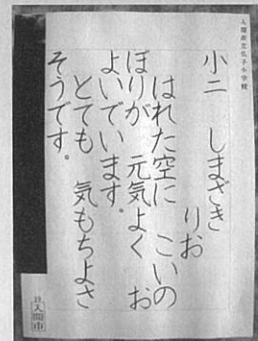 小二 しまざき りお
はれた空に こいの
ぼりが 元気よく お
よいでいます。
とても 気もちよさ
そうです。